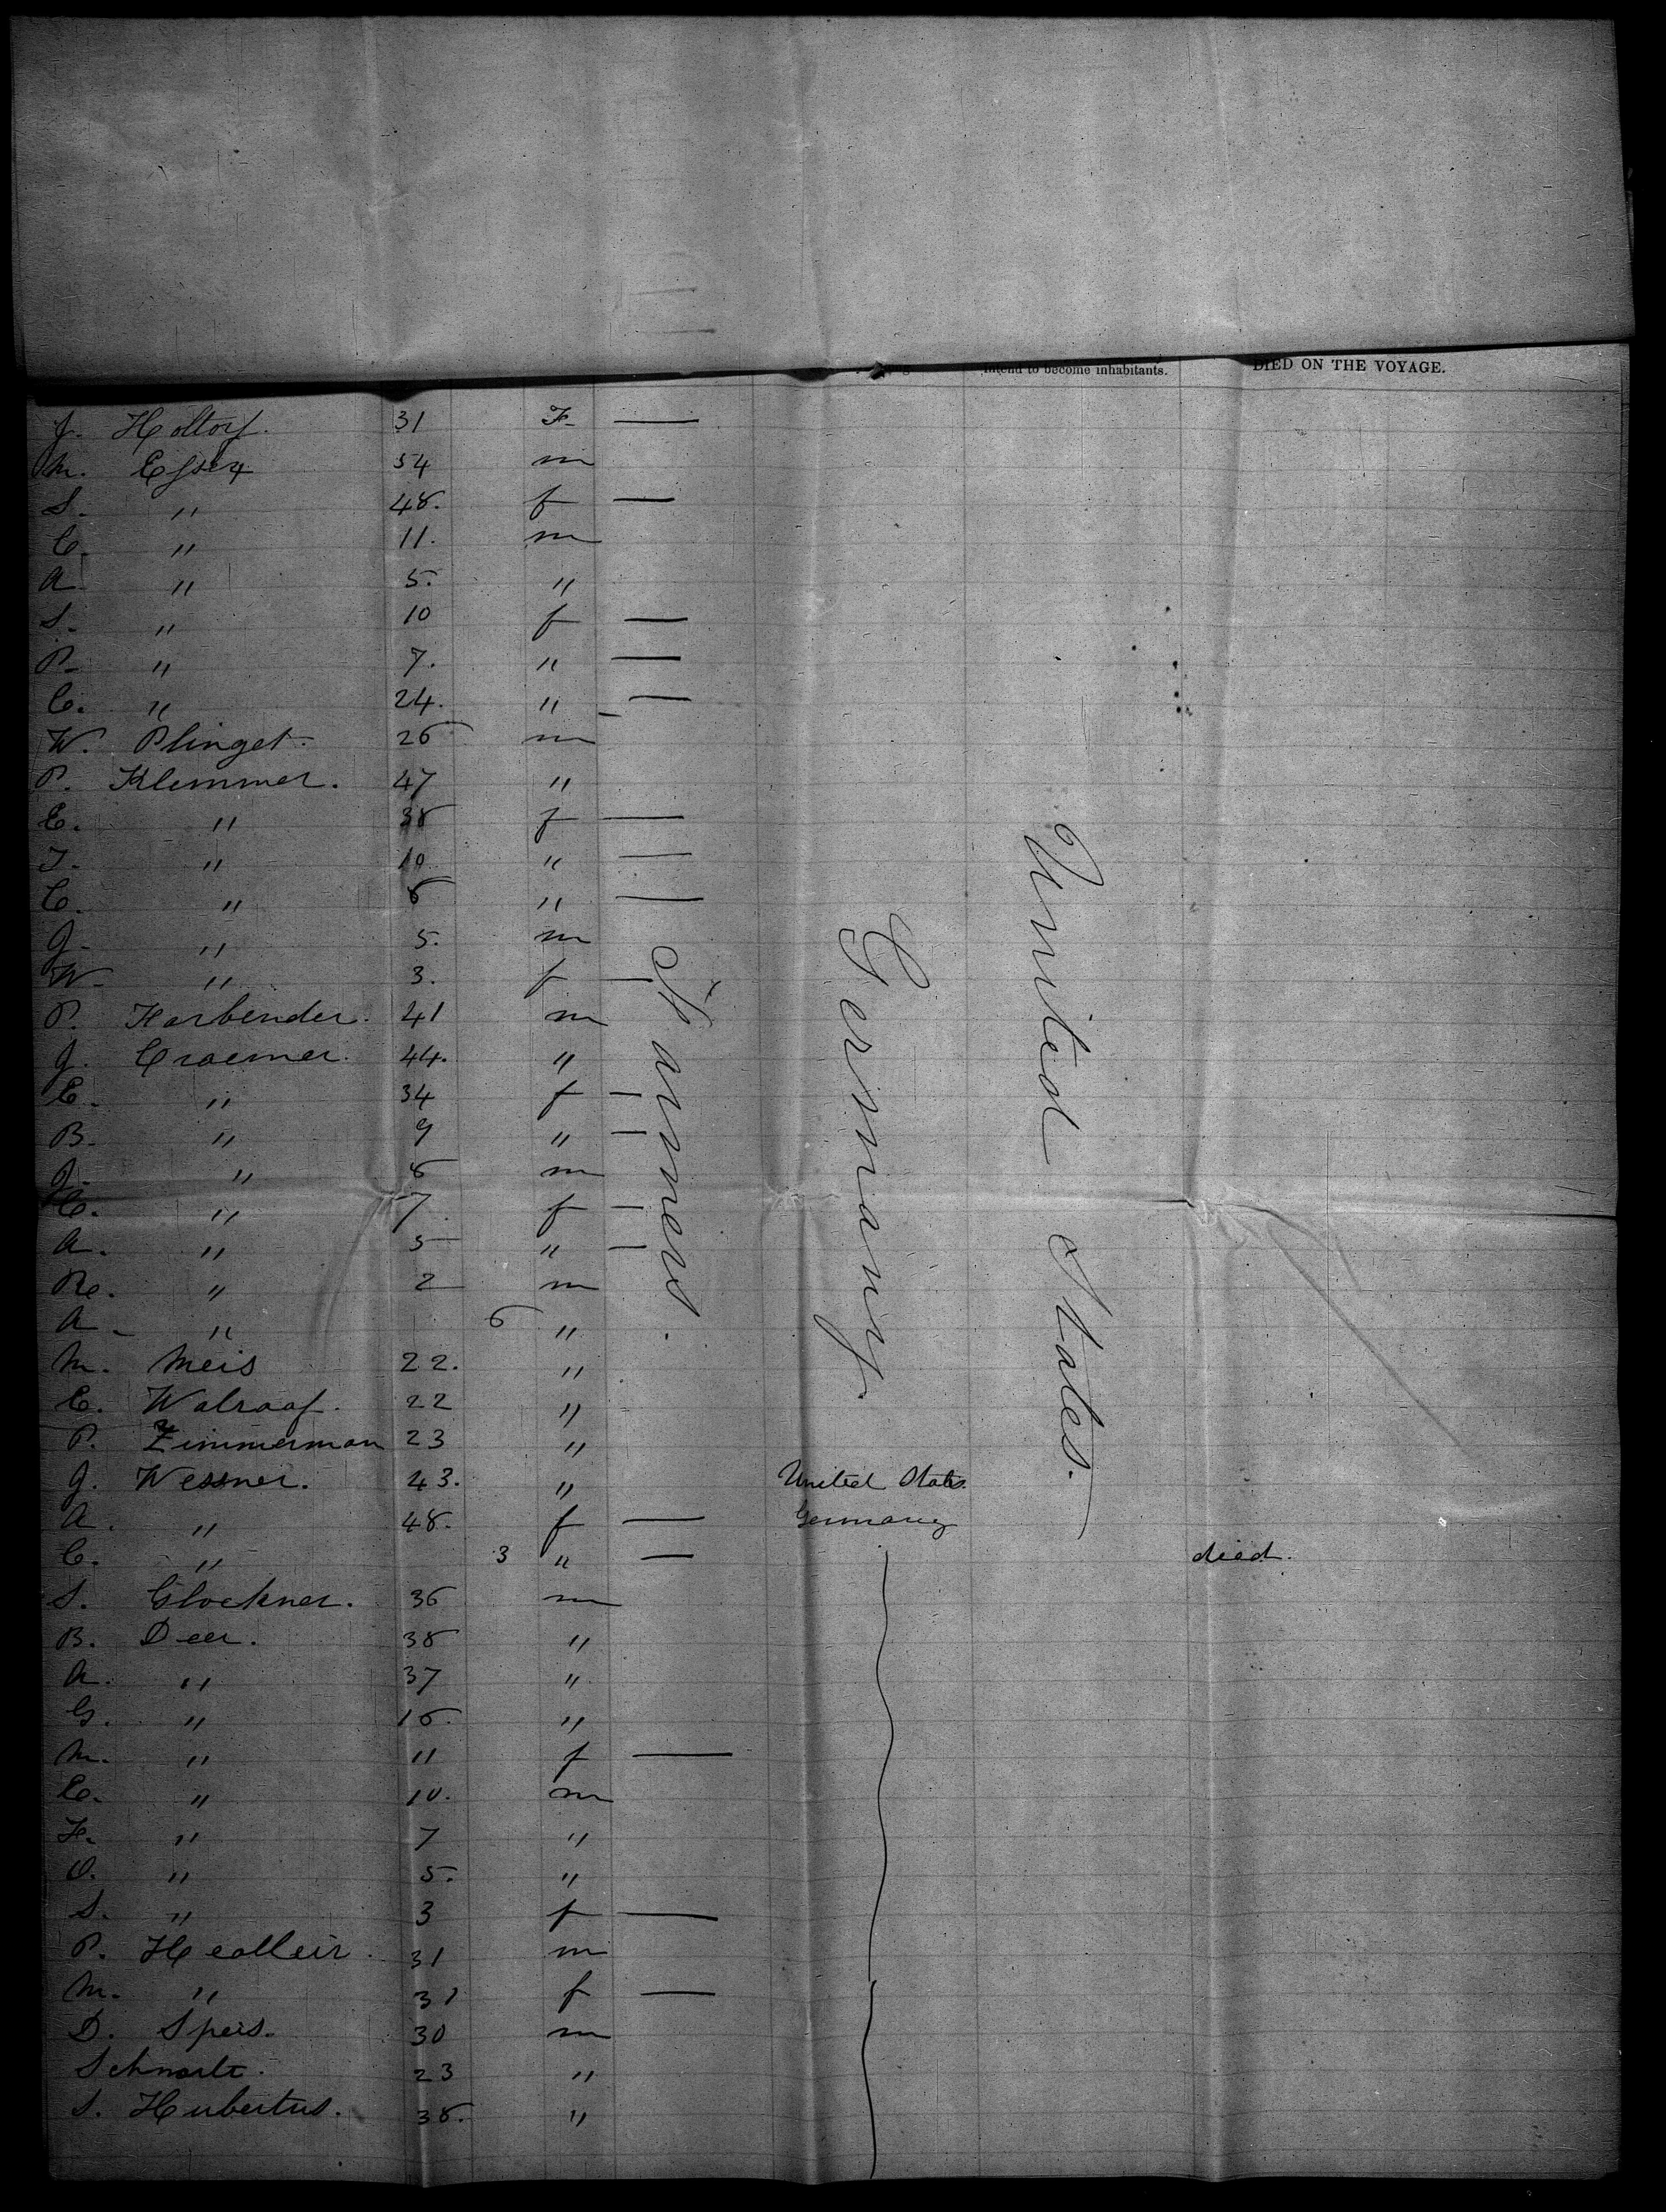 intend to become inhabitants. DIED ON THE VOYAGE.
J. Holtorf. 31 F —
M. Esser 54 m
S. " 48. f —
C. " 11. m
A " 5. "
S. " 10 f —
P. " 7. " —
C. " 24. " —
W. Plinget. 26 m
P. Klemmer. 47 "
E. " 38 f —
T. " 10 " —
C. " 8 " —
J. " 5. m
W. " 3. f —
P. Harbender. 41 m
J. Craemer. 44. "
C. " 34 f —
B. " 9 " —
J. " 8 m
C. " 7 f —
A. " 5 " —
Re. " 2 m
A. " 6 "
M. Meis 22. "
E. Walraaf. 22 "
P. Zimmerman 23 "
J. Wessner. 43. " United States.
A. " 48. f — Germany
C. " 3 " — died.
S. Glockner. 36 m
B. Deer. 38 "
A. " 37 "
G. " 16 "
M. " 11 f —
C. " 10. m
F. " 7 "
O. " 5. "
S. " 3 f —
P. Healleir. 31 m
M. " 31 f —
D. Speis. 30 m
23 "
S. Hubertus. 38. "
Farmers.
Germany.
United States.